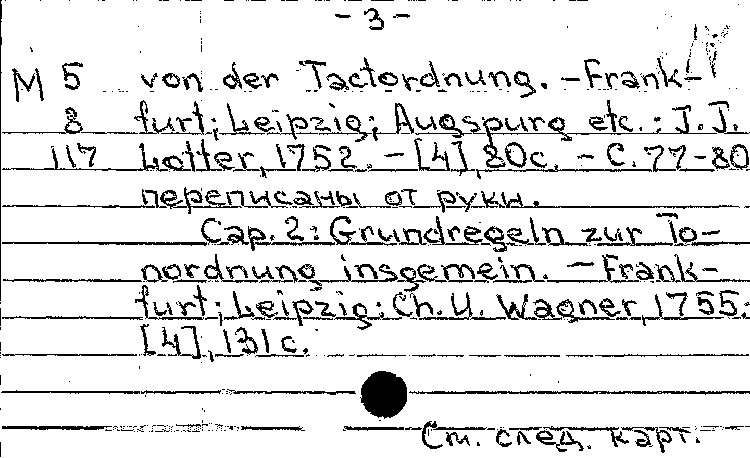 - 3 -
М 5 von der Tactordnung. - Frank-
8 furt; Leipzig; Augspurg etc.: J. J.
117 Lotter, 1752. - [4], 80 с. - С. 77-80
переписаны от руки.
Cap. 2: Grundregeln zur To-
nordnung insgemein. - Frank-
furt; Leipzig: Ch. U. Wagner, 1755.
[4], 131 с.
См. след. карт.